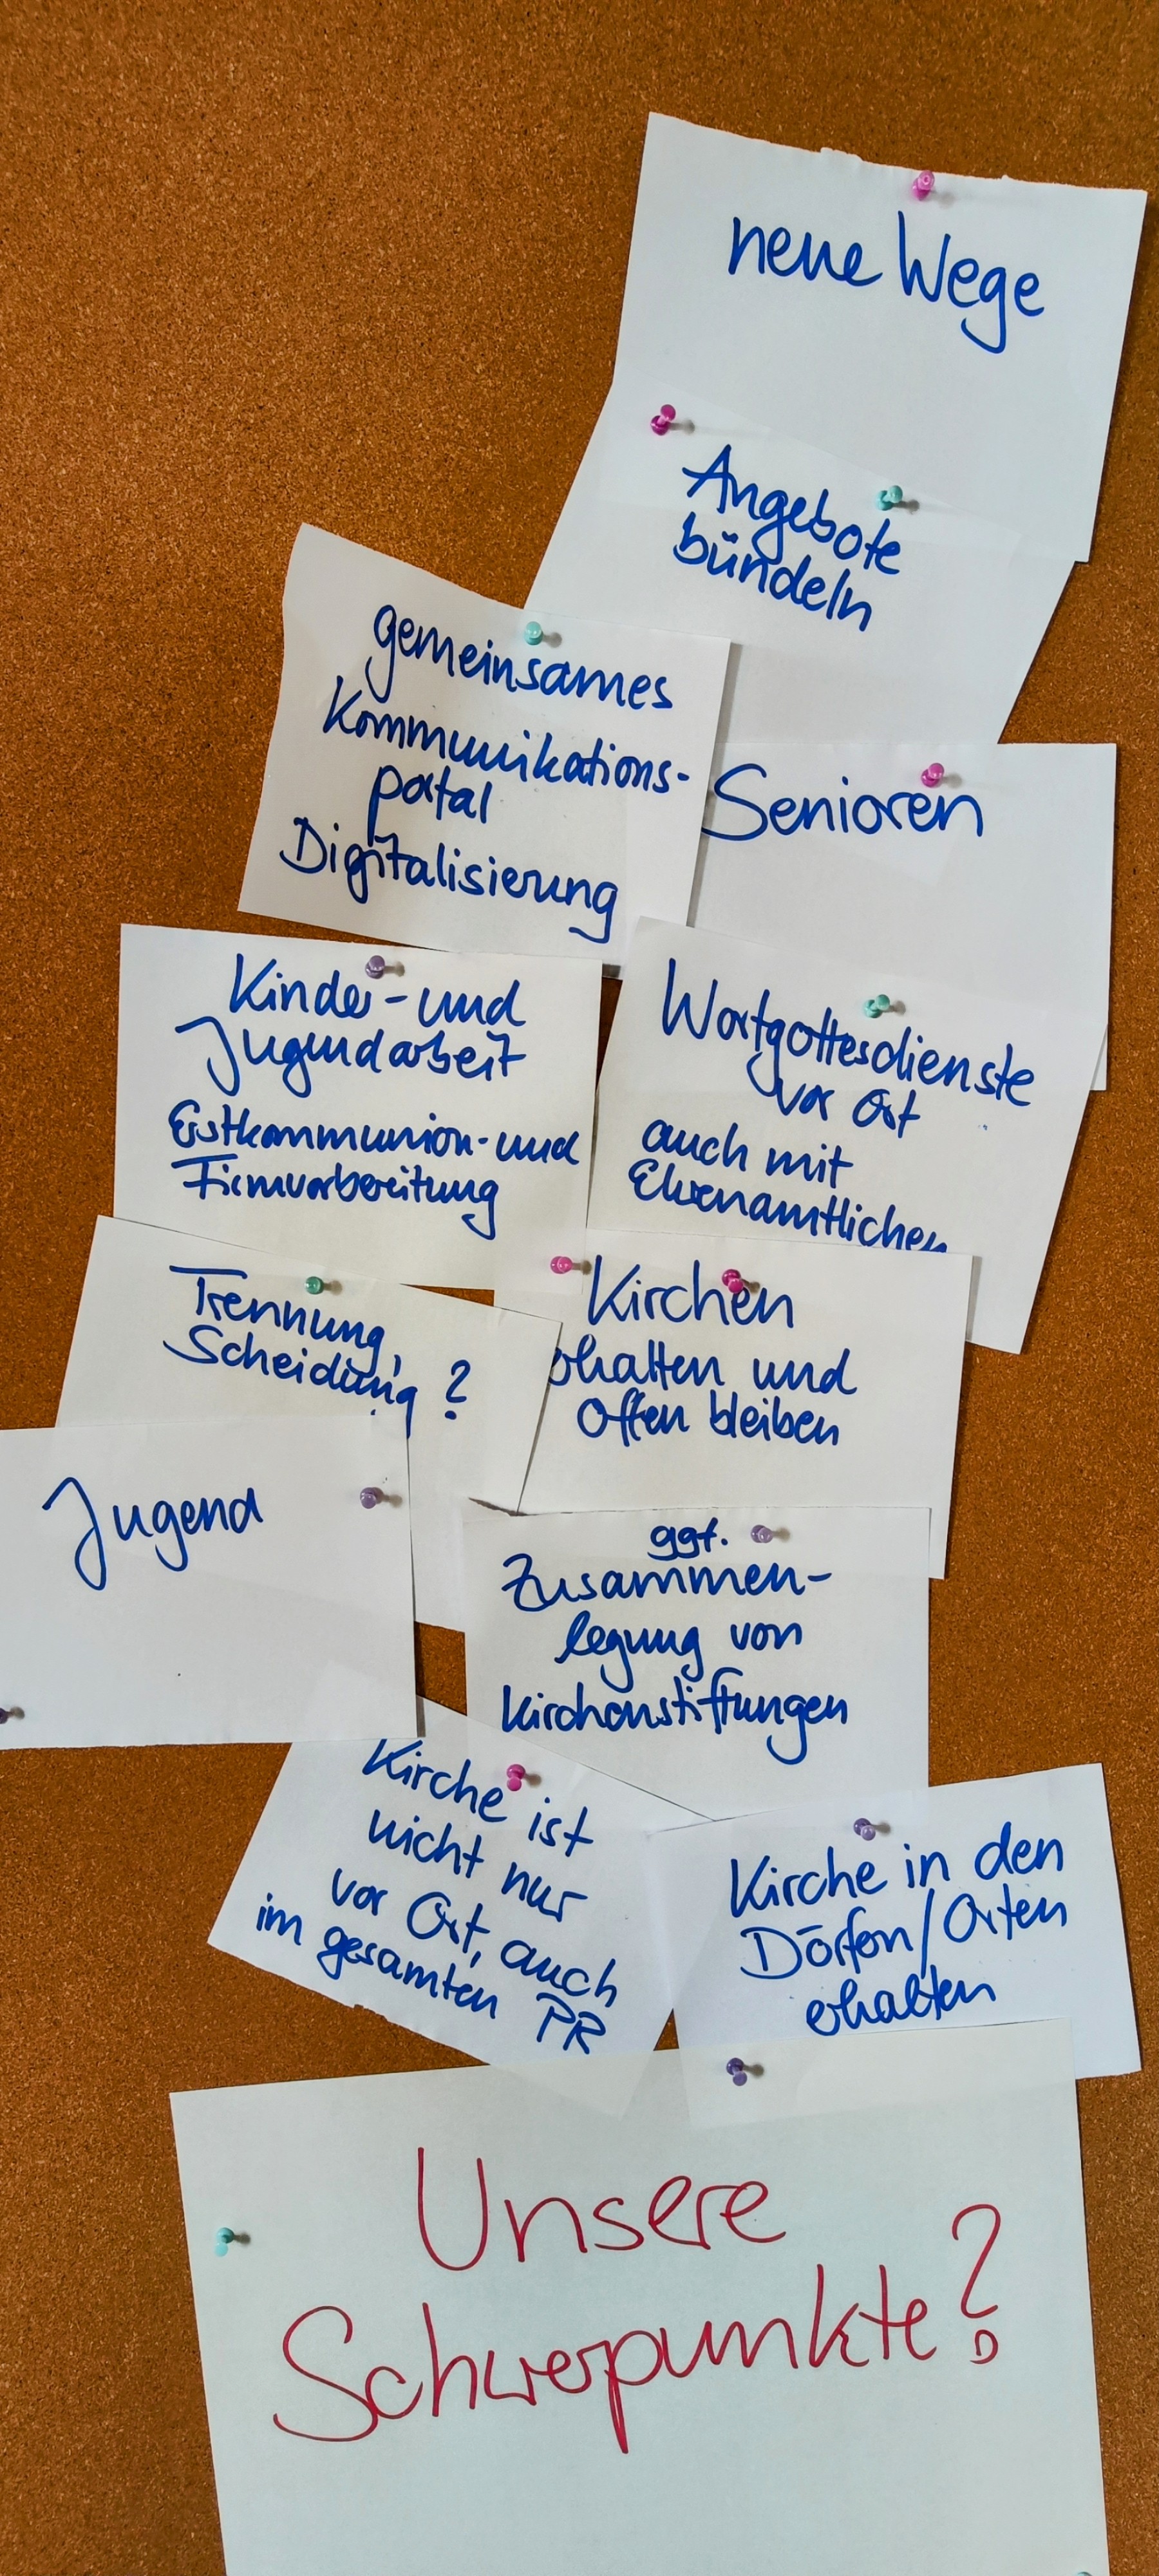 neue Wege
Angebote
bündeln
gemeinsames
Kommunikations-
portal
Digitalisierung
Senioren
Kinder-und
Jugendarbeit
Erstkommunion-und
Firmvorbereitung
Wortgottesdienste
vor Ort
auch mit
Ehrenamtlichen
Trennung,
Scheidung ?
Kirchen
erhalten und
Offen bleiben
Jugend
ggf.
Zusammen-
legung von
Kirchenstiftungen
Kirche ist
nicht nur
vor Ort, auch
im gesamten PR
Kirche in den
Dörfern/Orten
erhalten
Unsere
Schwerpunkte?